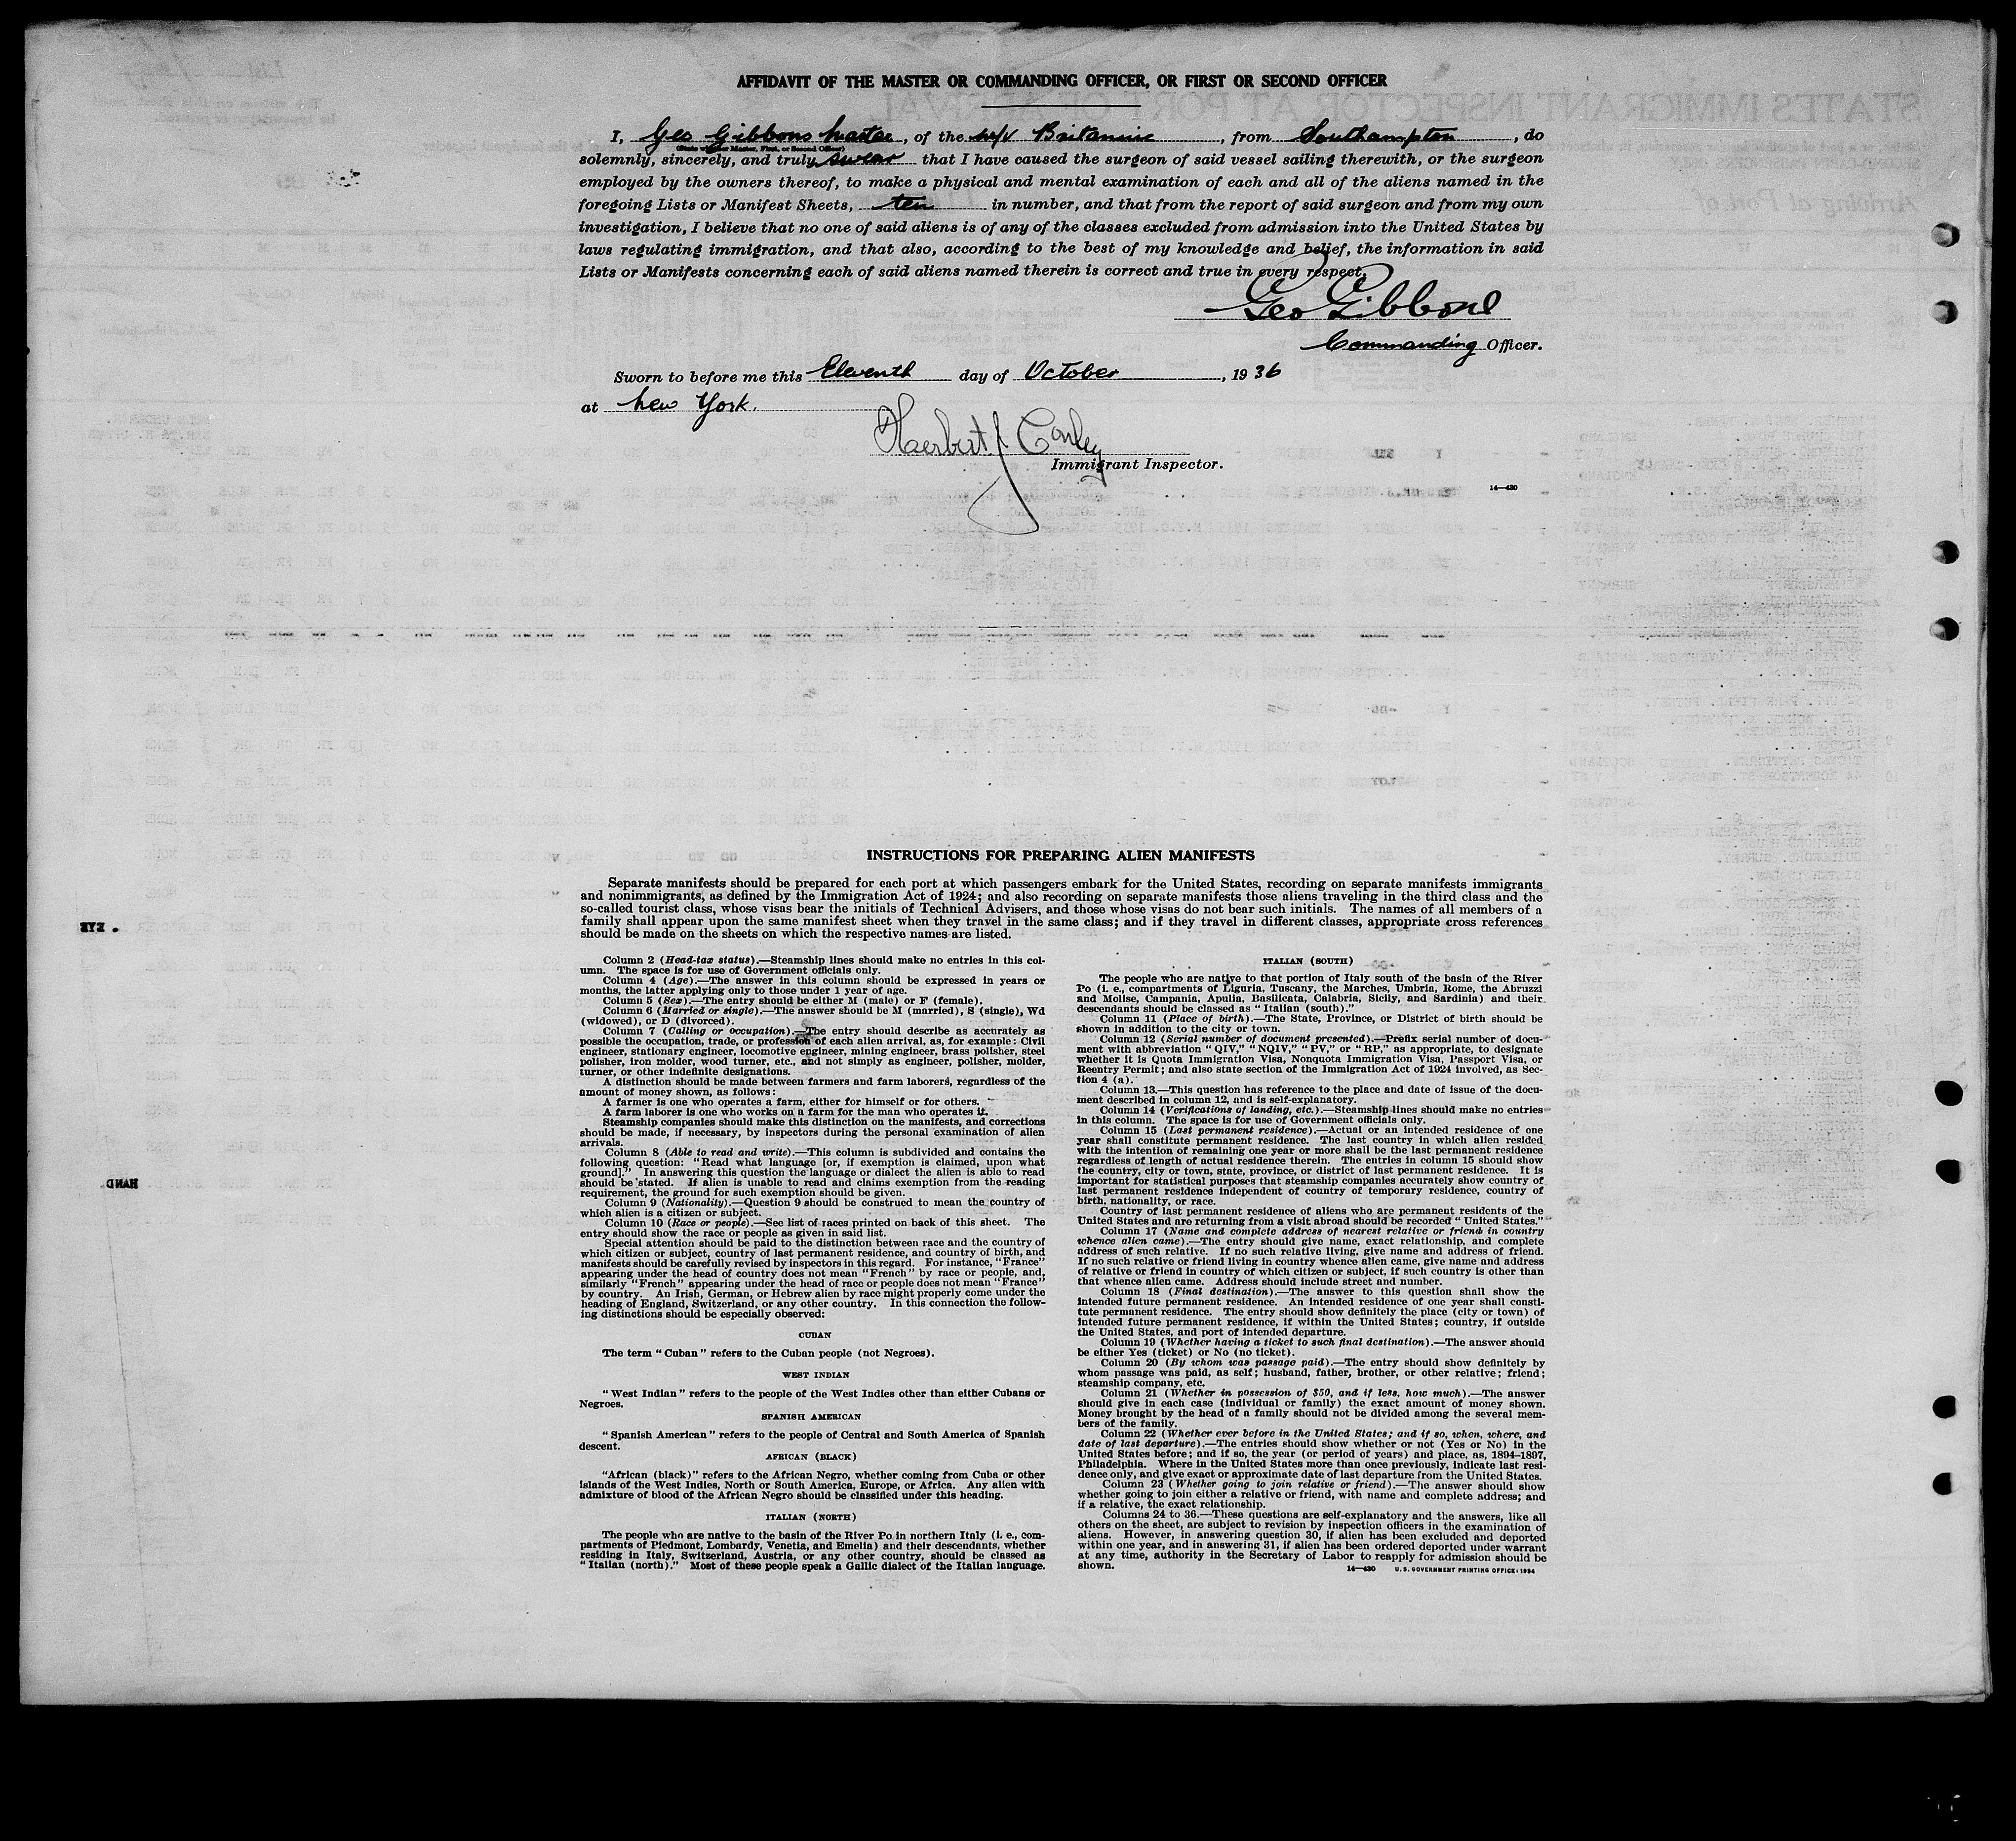 AFFIDAVIT OF THE MASTER OR COMMANDING OFFICER, OR FIRST OR SECOND OFFICER
I, Geo Gibbons Master, of the M/V Britannic, from Southampton, do
(State whether Master, First, or Second Officer)
solemnly, sincerely, and truly swear that I have caused the surgeon of said vessel sailing therewith, or the surgeon
employed by the owners thereof, to make a physical and mental examination of each and all of the aliens named in the
foregoing Lists or Manifest Sheets, ten in number, and that from the report of said surgeon and from my own
investigation, I believe that no one of said aliens is of any of the classes excluded from admission into the United States by
laws regulating immigration, and that also, according to the best of my knowledge and belief, the information in said
Lists or Manifests concerning each of said aliens named therein is correct and true in every respect.
Geo Gibbons
Commanding Officer.
Sworn to before me this Eleventh day of October, 1936
at New York.
Herbert J Conley
Immigrant Inspector.
14—430
INSTRUCTIONS FOR PREPARING ALIEN MANIFESTS
Separate manifests should be prepared for each port at which passengers embark for the United States, recording on separate manifests immigrants
and nonimmigrants, as defined by the Immigration Act of 1924; and also recording on separate manifests those aliens traveling in the third class and the
so-called tourist class, whose visas bear the initials of Technical Advisers, and those whose visas do not bear such initials. The names of all members of a
family shall appear upon the same manifest sheet when they travel in the same class; and if they travel in different classes, appropriate cross references
should be made on the sheets on which the respective names are listed.
Column 2 (Head-tax status).—Steamship lines should make no entries in this col-
umn. The space is for use of Government officials only.
Column 4 (Age).—The answer in this column should be expressed in years or
months, the latter applying only to those under 1 year of age.
Column 5 (Sex).—The entry should be either M (male) or F (female).
Column 6 (Married or single).—The answer should be M (married), S (single), Wd
(widowed), or D (divorced).
Column 7 (Calling or occupation).—The entry should describe as accurately as
possible the occupation, trade, or profession of each alien arrival, as, for example: Civil
engineer, stationary engineer, locomotive engineer, mining engineer, brass polisher, steel
polisher, iron molder, wood turner, etc., and not simply as engineer, polisher, molder,
turner, or other indefinite designations.
A distinction should be made between farmers and farm laborers, regardless of the
amount of money shown, as follows:
A farmer is one who operates a farm, either for himself or for others.
A farm laborer is one who works on a farm for the man who operates it.
Steamship companies should make this distinction on the manifests, and corrections
should be made, if necessary, by inspectors during the personal examination of alien
arrivals.
Column 8 (Able to read and write).—This column is subdivided and contains the
following question: "Read what language [or, if exemption is claimed, upon what
ground]." In answering this question the language or dialect the alien is able to read
should be stated. If alien is unable to read and claims exemption from the reading
requirement, the ground for such exemption should be given.
Column 9 (Nationality).—Question 9 should be construed to mean the country of
which alien is a citizen or subject.
Column 10 (Race or people).—See list of races printed on back of this sheet. The
entry should show the race or people as given in said list.
Special attention should be paid to the distinction between race and the country of
which citizen or subject, country of last permanent residence, and country of birth, and
manifests should be carefully revised by inspectors in this regard. For instance, "France"
appearing under the head of country does not mean "French" by race or people, and,
similarly "French" appearing under the head of race or people does not mean "France"
by country. An Irish, German, or Hebrew alien by race might properly come under the
heading of England, Switzerland, or any other country. In this connection the follow-
ing distinctions should be especially observed:
CUBAN
The term "Cuban" refers to the Cuban people (not Negroes).
WEST INDIAN
"West Indian" refers to the people of the West Indies other than either Cubans or
Negroes.
SPANISH AMERICAN
"Spanish American" refers to the people of Central and South America of Spanish
descent.
AFRICAN (BLACK)
"African (black)" refers to the African Negro, whether coming from Cuba or other
islands of the West Indies, North or South America, Europe, or Africa. Any alien with
admixture of blood of the African Negro should be classified under this heading.
ITALIAN (NORTH)
The people who are native to the basin of the River Po in northern Italy (i. e., com-
partments of Piedmont, Lombardy, Venetia, and Emelia) and their descendants, whether
residing in Italy, Switzerland, Austria, or any other country, should be classed as
"Italian (north)." Most of these people speak a Gallic dialect of the Italian language.
ITALIAN (SOUTH)
The people who are native to that portion of Italy south of the basin of the River
Po (i. e., compartments of Liguria, Tuscany, the Marches, Umbria, Rome, the Abruzzi
and Molise, Campania, Apulia, Basilicata, Calabria, Sicily, and Sardinia) and their
descendants should be classed as "Italian (south)."
Column 11 (Place of birth).—The State, Province, or District of birth should be
shown in addition to the city or town.
Column 12 (Serial number of document presented).—Prefix serial number of docu-
ment with abbreviation "QIV," "NQIV," "PV," or "RP," as appropriate, to designate
whether it is Quota Immigration Visa, Nonquota Immigration Visa, Passport Visa, or
Reentry Permit; and also state section of the Immigration Act of 1924 involved, as Sec-
tion 4 (a).
Column 13.—This question has reference to the place and date of issue of the docu-
ment described in column 12, and is self-explanatory.
Column 14 (Verifications of landing, etc.).—Steamship lines should make no entries
in this column. The space is for use of Government officials only.
Column 15 (Last permanent residence).—Actual or an intended residence of one
year shall constitute permanent residence. The last country in which alien resided
with the intention of remaining one year or more shall be the last permanent residence
regardless of length of actual residence therein. The entries in column 15 should show
the country, city or town, state, province, or district of last permanent residence. It is
important for statistical purposes that steamship companies accurately show country of
last permanent residence independent of country of temporary residence, country of
birth, nationality, or race.
Country of last permanent residence of aliens who are permanent residents of the
United States and are returning from a visit abroad should be recorded "United States."
Column 17 (Name and complete address of nearest relative or friend in country
whence alien came).—The entry should give name, exact relationship, and complete
address of such relative. If no such relative living, give name and address of friend.
If no such relative or friend living in country whence alien came, give name and address
of relative or friend in country of which citizen or subject, if such country is other than
that whence alien came. Address should include street and number.
Column 18 (Final destination).—The answer to this question shall show the
intended future permanent residence. An intended residence of one year shall consti-
tute permanent residence. The entry should show definitely the place (city or town) of
intended future permanent residence, if within the United States; country, if outside
the United States, and port of intended departure.
Column 19 (Whether having a ticket to such final destination).—The answer should
be either Yes (ticket) or No (no ticket).
Column 20 (By whom was passage paid).—The entry should show definitely by
whom passage was paid, as self; husband, father, brother, or other relative; friend;
steamship company, etc.
Column 21 (Whether in possession of $50, and if less, how much).—The answer
should give in each case (individual or family) the exact amount of money shown.
Money brought by the head of a family should not be divided among the several mem-
bers of the family.
Column 22 (Whether ever before in the United States; and if so, when, where, and
date of last departure).—The entries should show whether or not (Yes or No) in the
United States before; and if so, the year (or period of years) and place, as, 1894–1897,
Philadelphia. Where in the United States more than once previously, indicate last resi-
dence only, and give exact or approximate date of last departure from the United States.
Column 23 (Whether going to join relative or friend).—The answer should show
whether going to join either a relative or friend, with name and complete address; and
if a relative, the exact relationship.
Columns 24 to 36.—These questions are self-explanatory and the answers, like all
others on the sheet, are subject to revision by inspection officers in the examination of
aliens. However, in answering question 30, if alien has been excluded and deported
within one year, and in answering 31, if alien has been ordered deported under warrant
at any time, authority in the Secretary of Labor to reapply for admission should be
shown.
14—430 U. S. GOVERNMENT PRINTING OFFICE: 1934